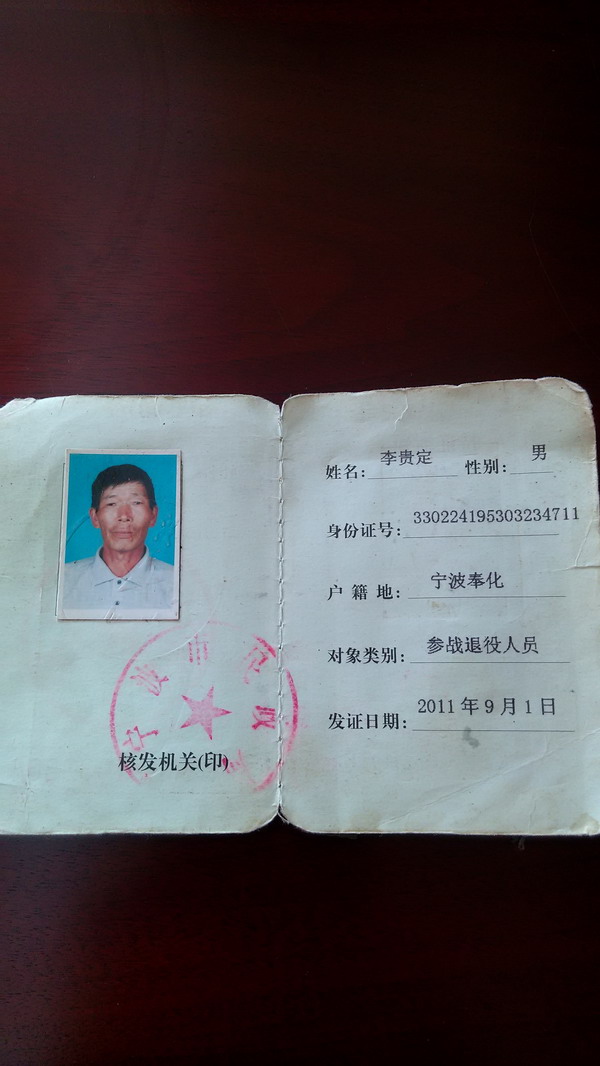 宁波市民政局
核发机关(印)
姓名: 李贵定 性别: 男
身份证号: 330224195303234711
户籍地: 宁波奉化
对象类别: 参战退役人员
发证日期: 2011年9月1日